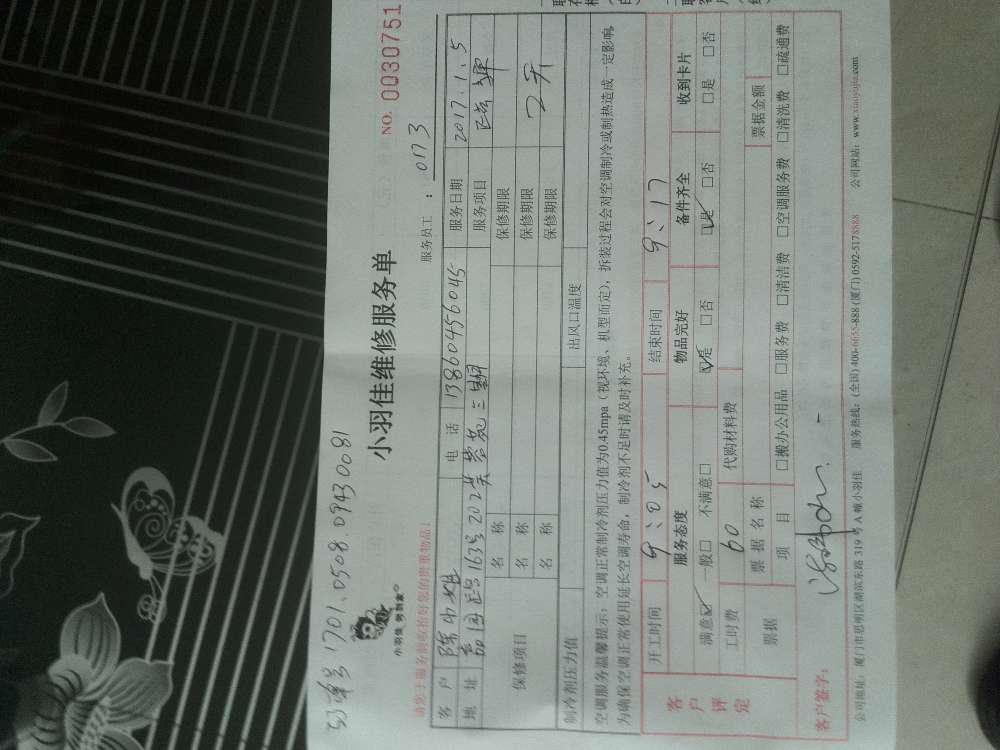 1701.0508.09430081
小羽佳维修服务单
NO: 0030751
请您于服务前收拾好您的贵重物品!
服务员工: 0173
客户 陈小姐 电话 13860456045 服务日期 2017.1.5
地址 163号202芙蓉苑三期 服务项目
保修项目 名称 保修期限
名称 保修期限 2天
名称 保修期限
制冷剂压力值 出风口温度
空调服务温馨提示:空调正常制冷剂压力值为0.45mpa(视环境、机型而定),拆装过程会对空调制冷或制热造成一定影响,
为确保空调正常使用延长空调寿命,制冷剂不足时请及时补充。
客户评定
开工时间 9:05 结束时间 9:17
服务态度 物品完好 备件齐全 收到卡片
满意☑ 一般□ 不满意□ ☑是 □否 ☑是 □否 □是 □否
工时费 60 代购材料费
票据 票据名称 票据金额
项目 □搬办公用品 □服务费 □清洁费 □空调服务费 □清洗费 □疏通费
客户签字:
公司地址:厦门市思明区湖滨东路319号A幢小羽佳 服务热线:(全国)400-6655-888(厦门)0592-5178888 公司网站:www.xiaoyujia.com